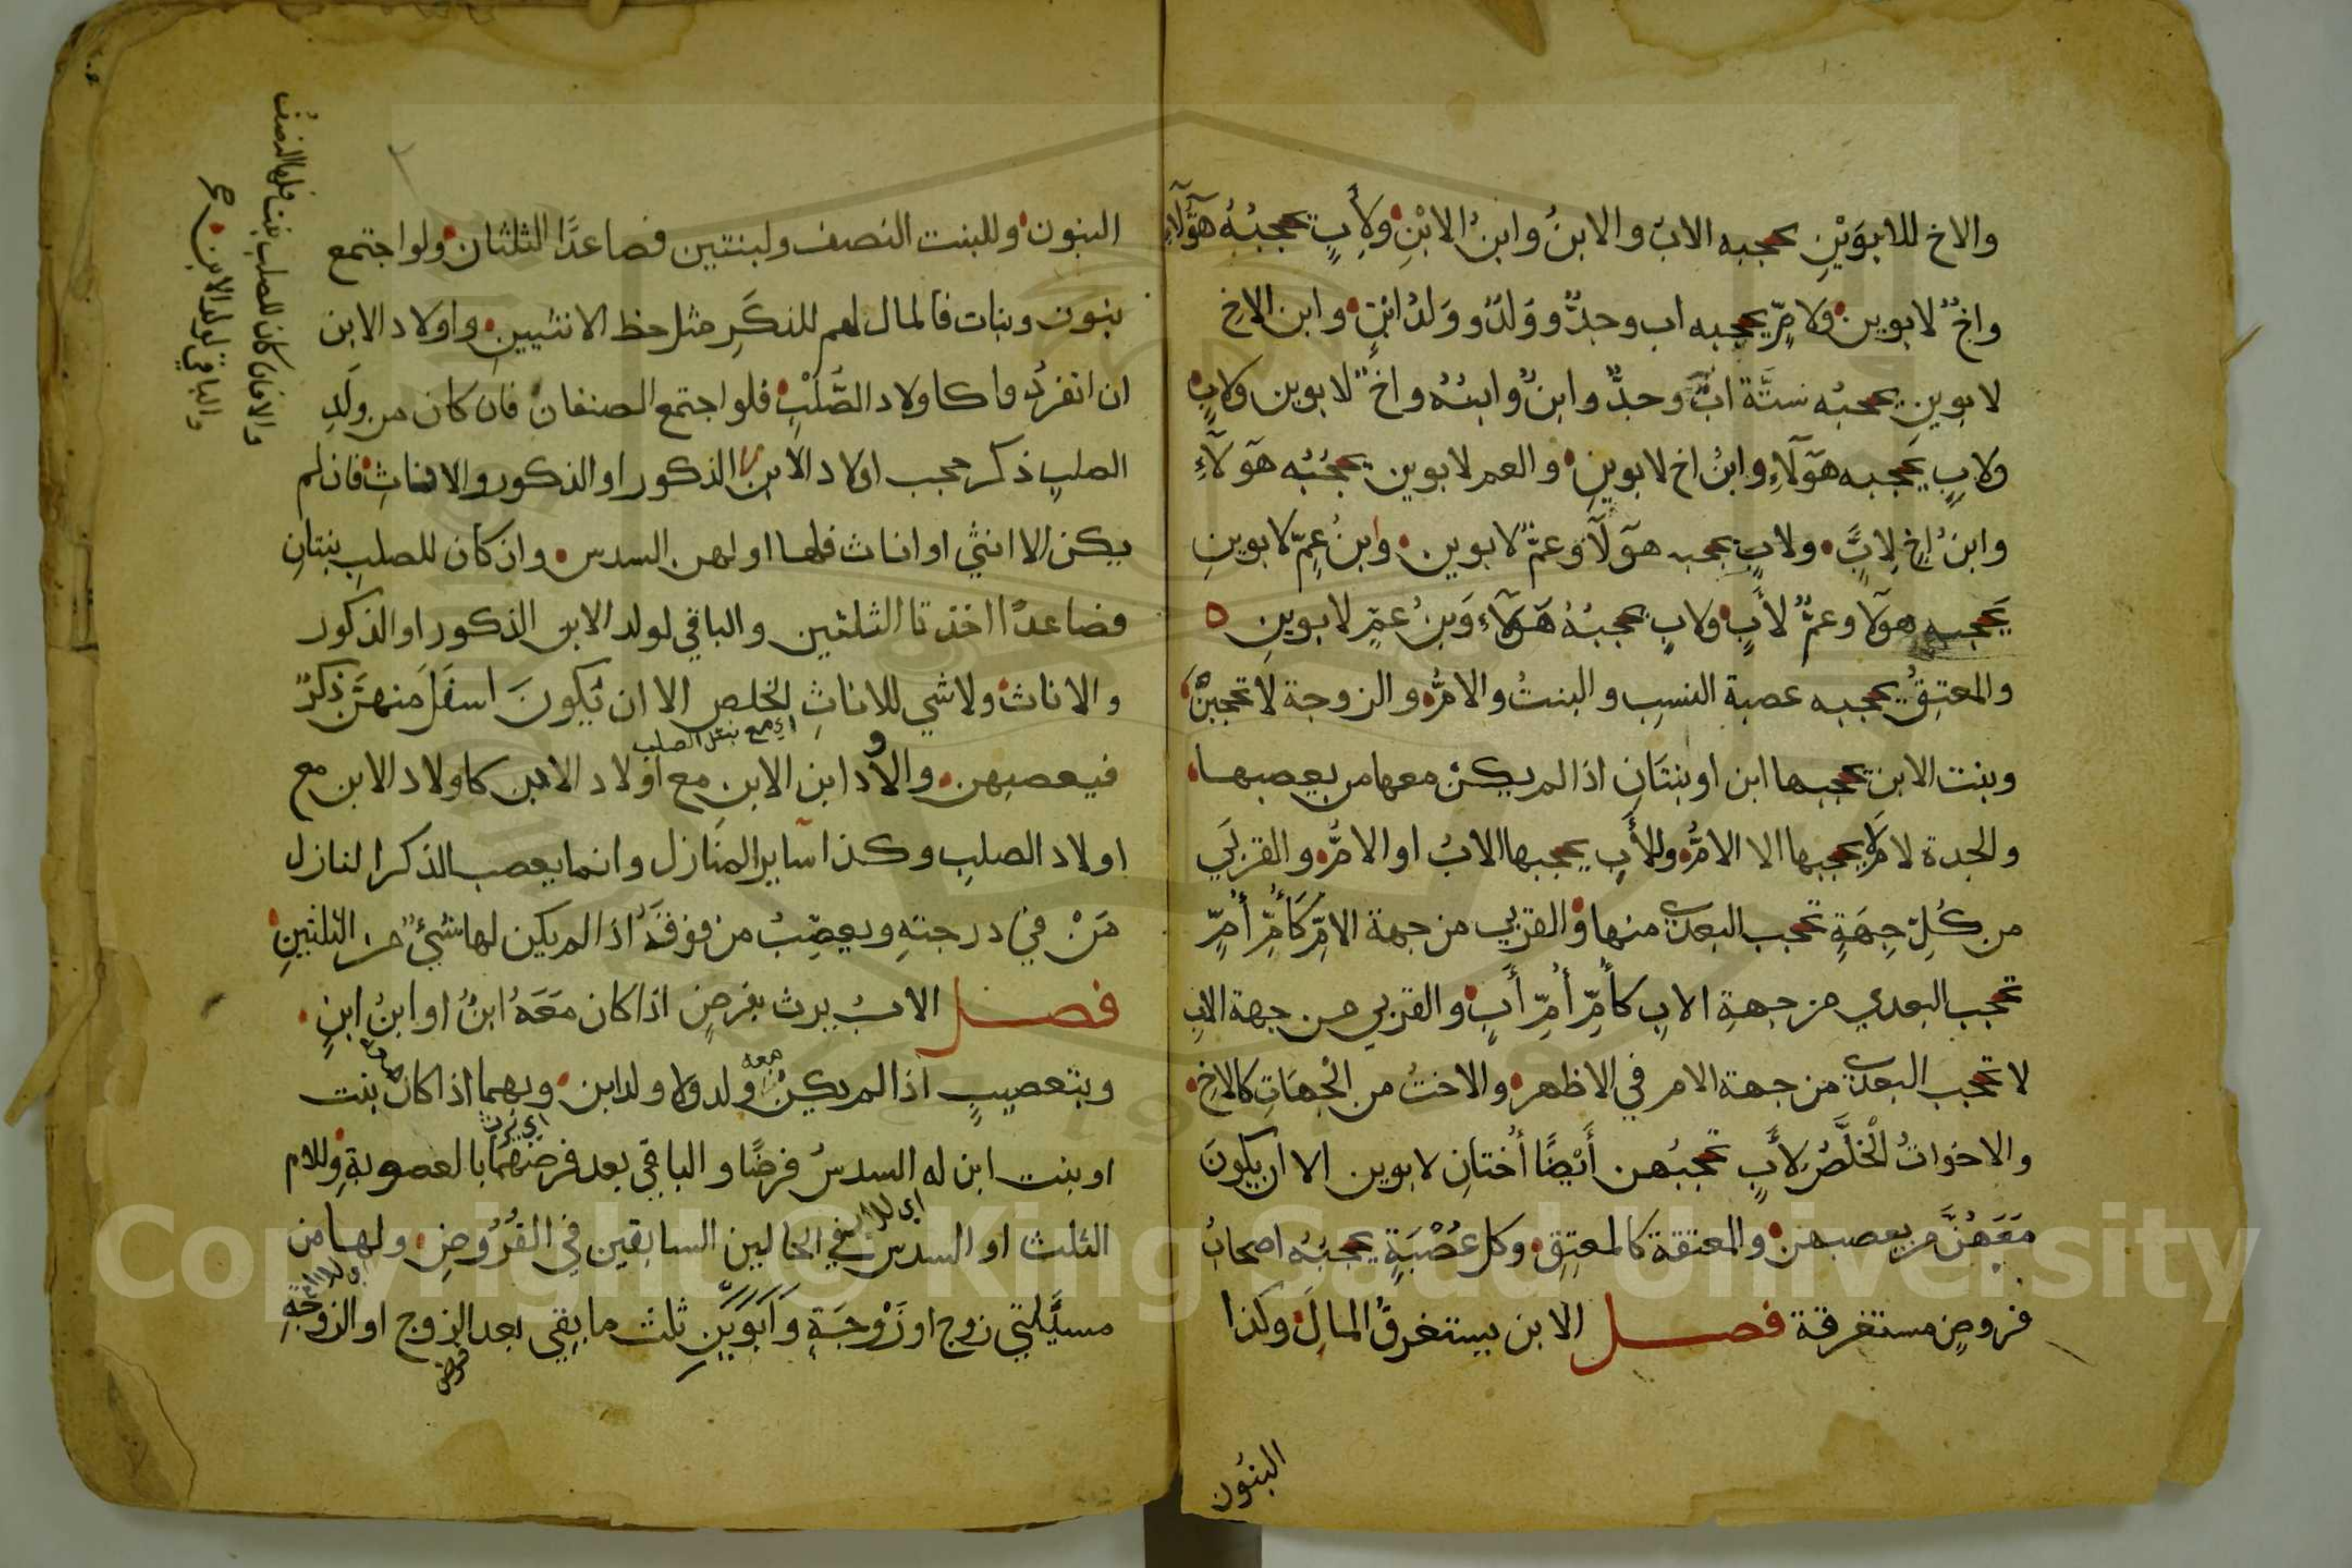 والاخ للابوين يحجبه الاب والابن وابن الابن ولاب يحجبه هؤلاء
واخ لابوين ولام يحجبه اب وجد وولد وولد ابن وابن الاخ
لابوين يحجبه ستة اب وجد وابن وابنه واخ لابوين ولاب
ولاب يحجبه هولاء وابن اخ لابوين والعم لابوين يحجبه هولاء
وابن اخ لاب ولاب يحجبه هولا وعم لابوين وابن عم لابوين
يحجبه هولا وعم لاب ولاب يحجبه هولاء وبن عم لابوين ه
والمعتق يحجبه عصبة النسب والبنت والام والزوجة لا تحجبن
وبنت الابن يحجبها ابن او بنتان اذا لم يكن معها من يعصبها
والجدة لام لا يحجبها الا الام وللأب يحجبها الاب او الام والقربي
من كل جهة تحجب البعدى منها والقربي من جهة الام كأم أم
تحجب البعدي من جهة الاب كأم أم أب والقربي من جهة الاب
لا تحجب البعدى من جهة الام في الاظهر والاخت من الجهات كالاخ
والاخوات الخلص لأب تحجبهن أيضا أختان لابوين الا ان يكون
معهن من يعصبهن والمعتقة كالمعتق وكل عصبة يحجبه اصحاب
فروض مستغرقة فصل الابن يستغرق المال وكذا
البنون
البنون وللبنت النصف ولبنتين فصاعدا الثلثان ولو اجتمع
بنون وبنات فالمال لهم للذكر مثل حظ الانثيين واولاد الابن
ان انفردوا كاولاد الصلب فلو اجتمع الصنفان فان كان من ولد
الصلب ذكر حجب اولاد الابن الذكور او الذكور والاناث فان لم
يكن الا انثي او اناث فلها او لهن السدس وان كان للصلب بنتان
فصاعدا اخذتا الثلثين والباقي لولد الابن الذكور او الذكور
والاناث ولا شي للاناث الخلص الا ان يكون اسفل منهن ذكر
اي مع بنتى الصلب
فيعصبهن واولاد ابن الابن مع اولاد الابن كاولاد الابن مع
اولاد الصلب وكذا ساير المنازل وانما يعصب الذكر النازل
من في درجته ويعصب من فوقه اذا لم يكن لها شيء من الثلثين
فصل الاب يرث بفرض اذا كان معه ابن او ابن ابن
وبتعصيب اذا لم يكن معه ولد ولا ولد ابن وبهما اذا كان معه بنت
او بنت ابن له السدس فرضا والباقي بعد فرضهما بالعصوبة وللام
الثلث او السدس في الحالين السابقين في الفروض ولها من
مسئلتي زوج او زوجة وابوين ثلث ما بقي بعد الزوج او الزوجة
فرض
والا فان كان للصلب بنت فلها النصف
والباقي لولد الابن